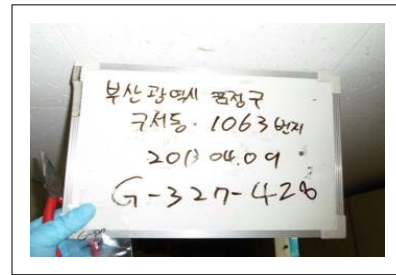 부산광역시 금정구
구서동. 1063번지
2013 04.09.
G-327-428